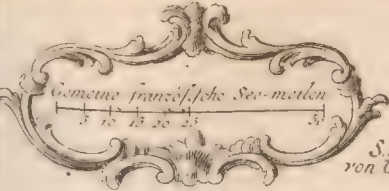 Gemeine französische See-meilen
5 10 15 20 25 50
von